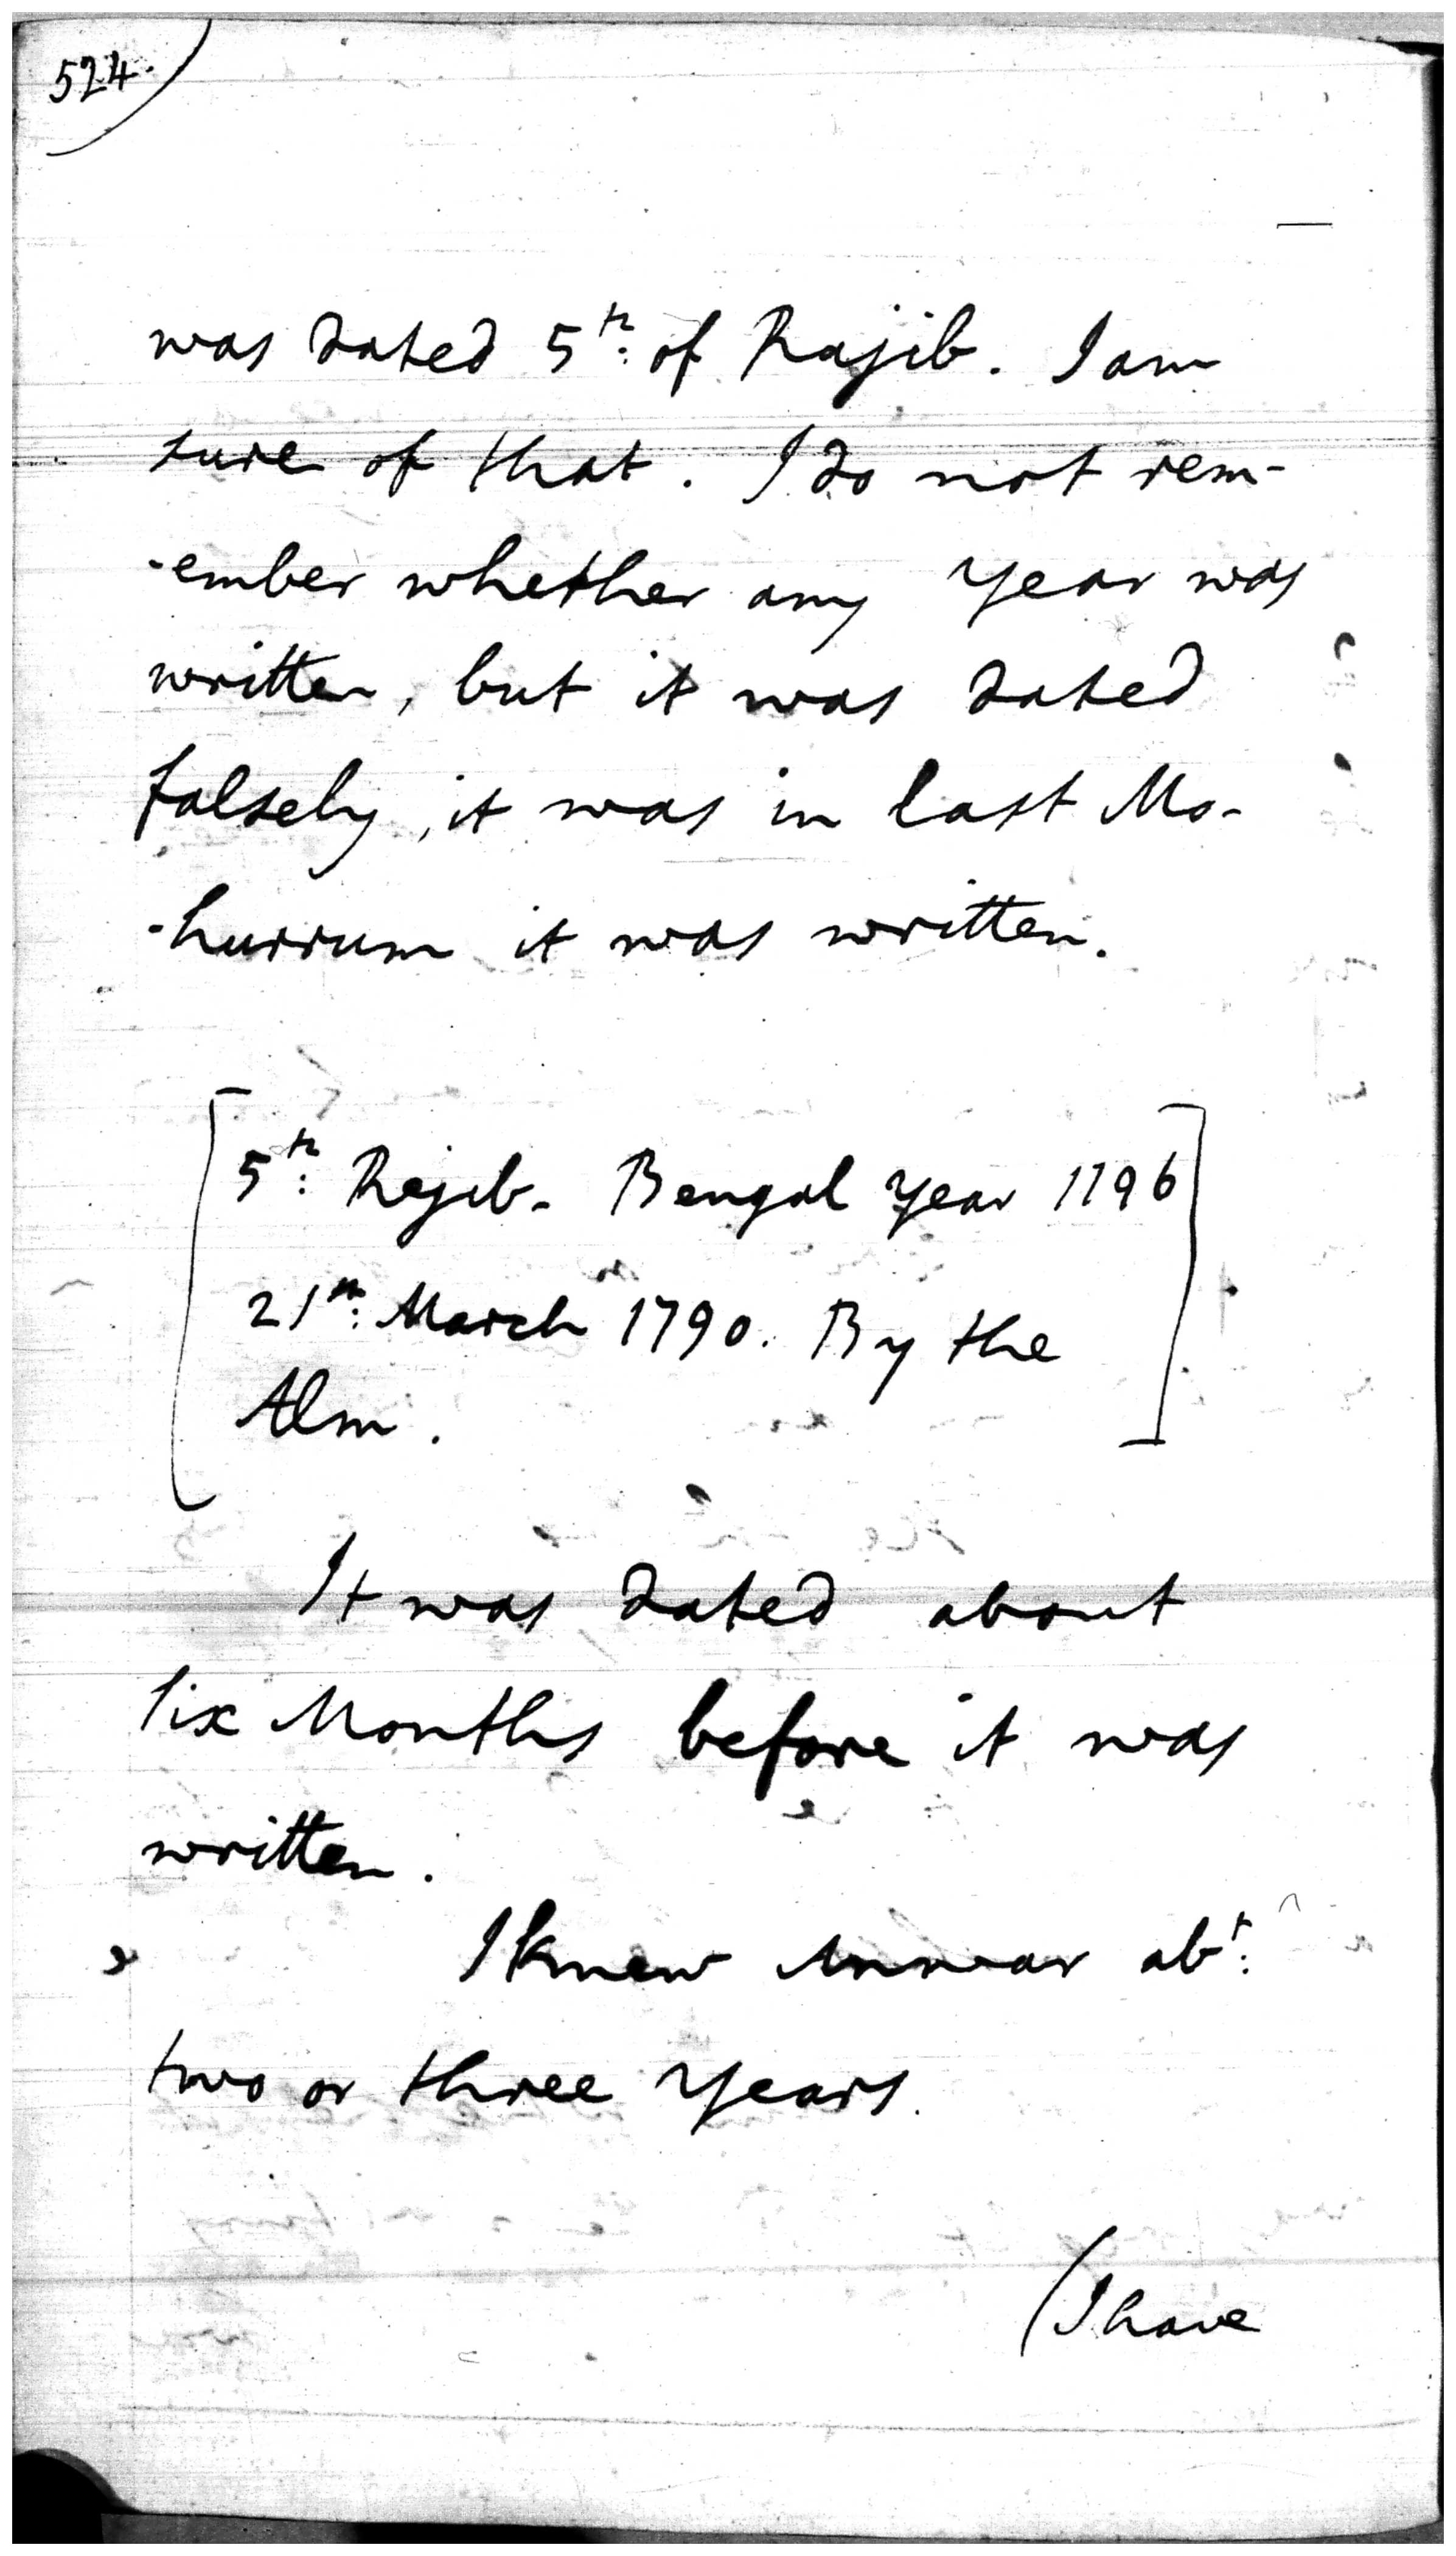 524.
was dated 5th: of Rajib. I am
sure of that. I do not rem-
-ember whether any year was
written, but it was dated
falsely, it was in last Mo-
-hurrum it was written.
5th: Rejib- Bengal year 1196
21st: March 1790. By the
Alm.
It was dated about
six Months before it was
written.
I knew Anwar abt:
two or three years.
(I have